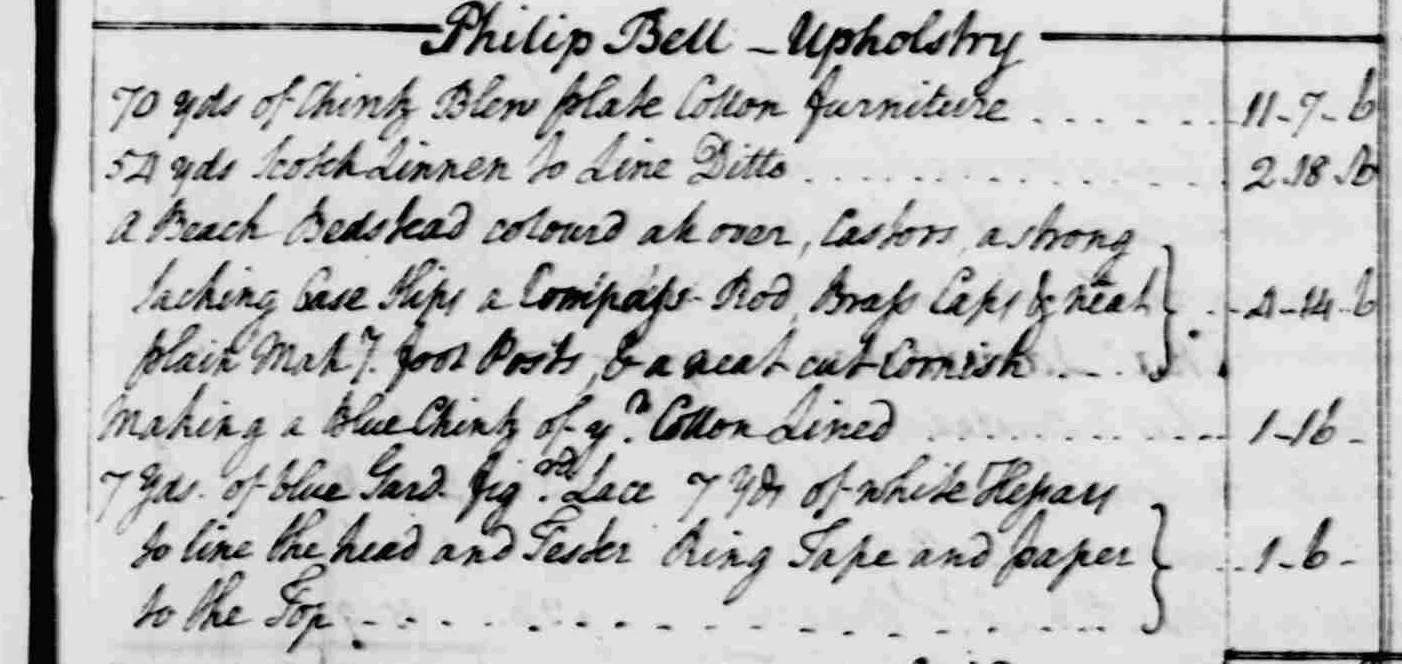 Philip Bell – Upholstry
70 yds of Chintz Blew plate Cotton furniture . . . . . . 11–7–6
54 yds Scotch Linnen to Line Ditto . . . . . . . . . . . . . 2.18.6
A Beach Bedstead colourd all over, Castors, a strong
Sacking Case Hips a Compass Rod, Brass Caps & neat . . 4–14–6
plain Mahy. foot Posts, & a neat cut Cornish . . . .
Making a Blue Chintz of yr. Cotton Lined . . . . . . . . . . 1–16–
7 Yds. of blue Gard figrd. Lace 7 Yds of white
to line the head and Tester Ring Tape and paper . . 1–6–
to the Top . . . . . . . . . . . . . . .